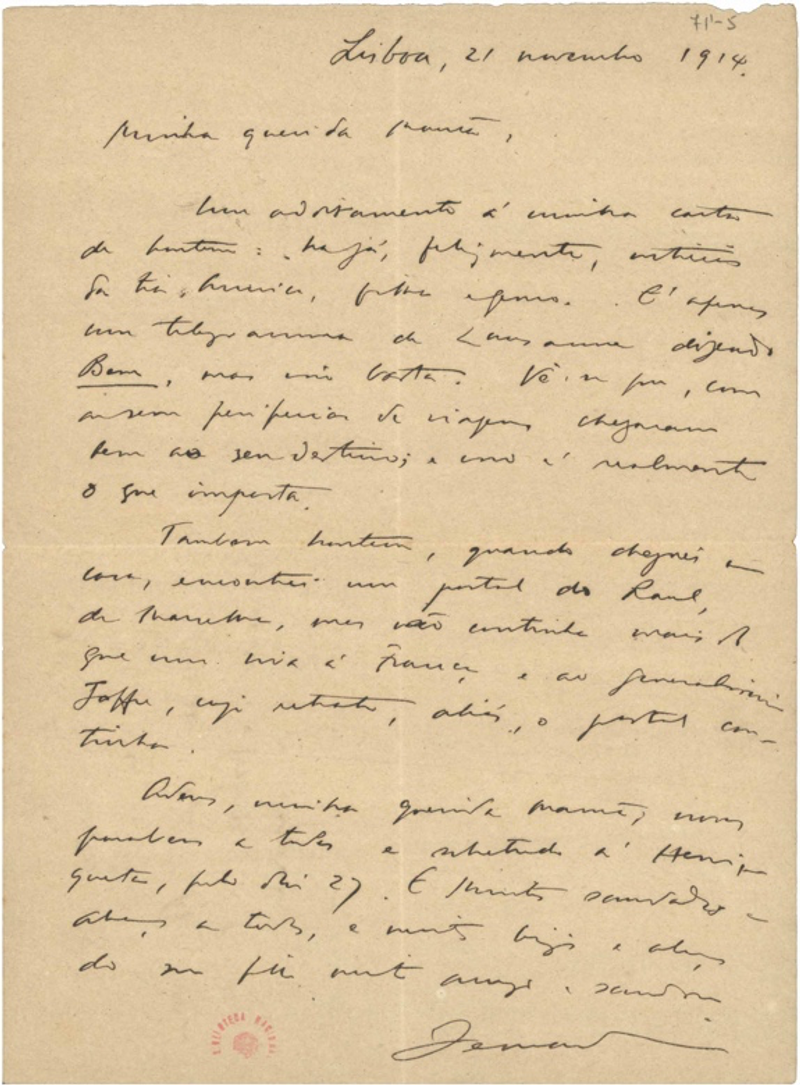 71¹-5
Lisboa, 21 novembro 1914.
Minha querida Mamã,
Um additamento á minha carta
de hontem: ha já, felizmente, noticias
da tia Annica, filha e genro. E' apenas
um telegramma de Lausanne dizendo
Bem, mas isso basta. Vê-se que, com
ou sem peripecias de viagem chegaram
bem ao seu destino; e isso é realmente
o que importa.
Tambem hontem, quando cheguei a
casa, encontrei um postal do Raul,
de Marselha, mas não continha mais do
que um viva á França e ao generalissimo
Joffre, cujo retrato, aliás, o postal con-
tinha.
Adeus, minha querida Mamã; novos
parabens a todos e sobretudo á Henri-
queta, pelo dia 27. E muitas saudades e
abraços a todos, e muitos beijos e abraços
do seu filho muito amigo e saudoso
Fernando
BIBLIOTECA NACIONAL